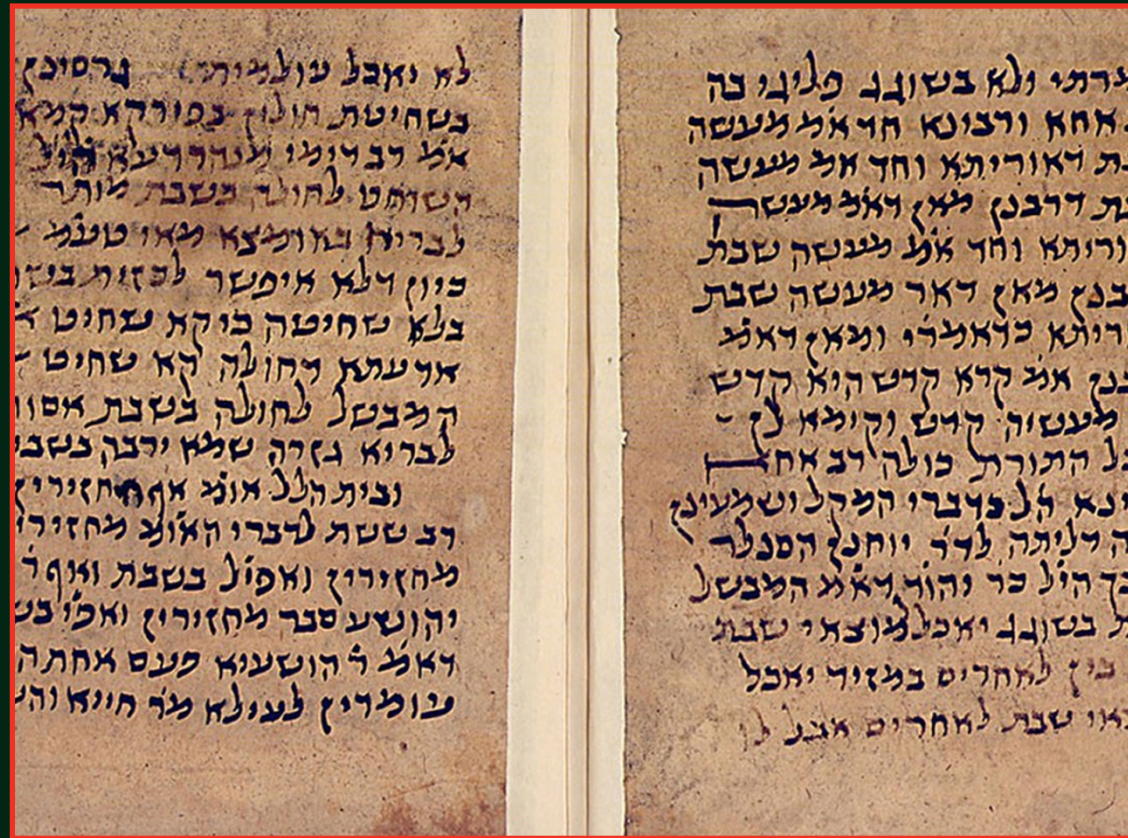 ולא בשוגג פליגי בה
אחא ורבינא חד אמ׳ מעשה
דאוריתא וחד אמ׳ מעשה
דרבנן מאן דאמ׳ מעשה
וחד אמ׳ מעשה שבת
מאן דאר מעשה שבת
כדאמרי׳ ומאן דאמ׳
אמ׳ קרא קדש היא קדש
מעשיה קדש וקימא לן
התורה כולה רב אחא
הל׳ כדברי המקל ושמעינן
דליתה לדר׳ יוחנן הסנדלר
היל׳ כר׳ יהוד׳ דאמ׳ המבשל
בשוגג יאכל למוצאי שבת
בין לאחרים במזיד יאכל
שבת לאחרים אבל לו
לא יאכל עולמית גרסינן
בשחיטת חולין בפירקא קמא
אמ׳ רב דימי מנהרדעא היל׳
השוחט לחולה בשבת מותר
לבריא באומצא מאי טעמ׳
כיון דלא איפשר לכזית
בלא שחיטה כי קא שחיט
אדעתא דחולה קא שחיט
המבשל לחולה בשבת
לבריא גזרה שמא ירבה
ובית הלל אומ׳ אף מחזירין
רב ששת לדברי האומ׳
מחזירין ואפיל׳ בשבת ואף ר׳
יהושע סבר מחזירין ואפי׳
דאמ׳ ר׳ הושעיא פעם אחת
עומדין לעילא מר׳ חייא